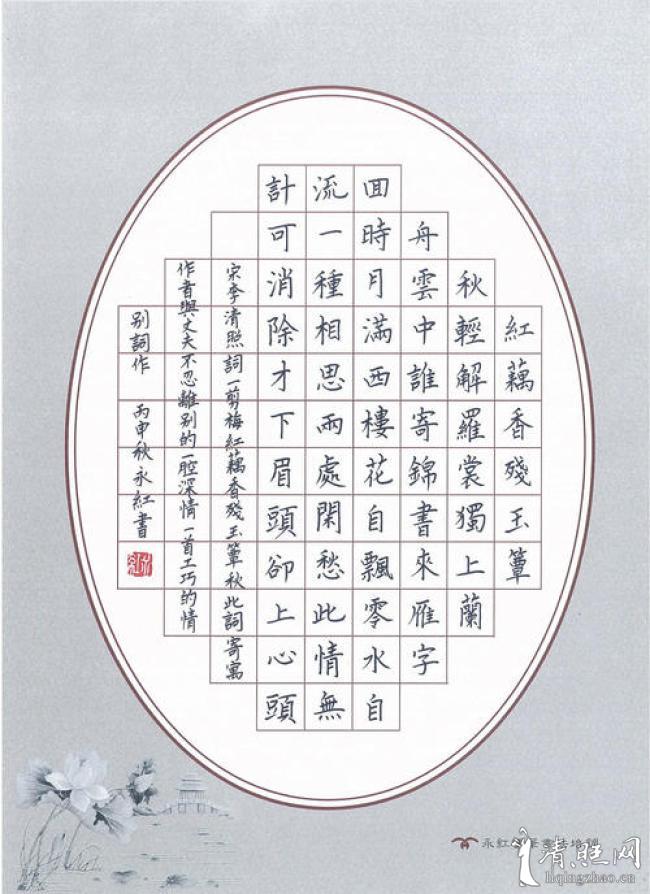 紅藕香殘玉簟
秋輕解羅裳獨上蘭
舟雲中誰寄錦書來雁字
回時月滿西樓花自飄零水自
流一種相思兩處閑愁此情無
計可消除才下眉頭卻上心頭
宋李清照詞一剪梅紅藕香殘玉簟秋此詞寄寓
作者與丈夫不忍離别的一腔深情一首工巧的情
别詞作 丙申秋永紅書
清照网
liqingzhao.cn